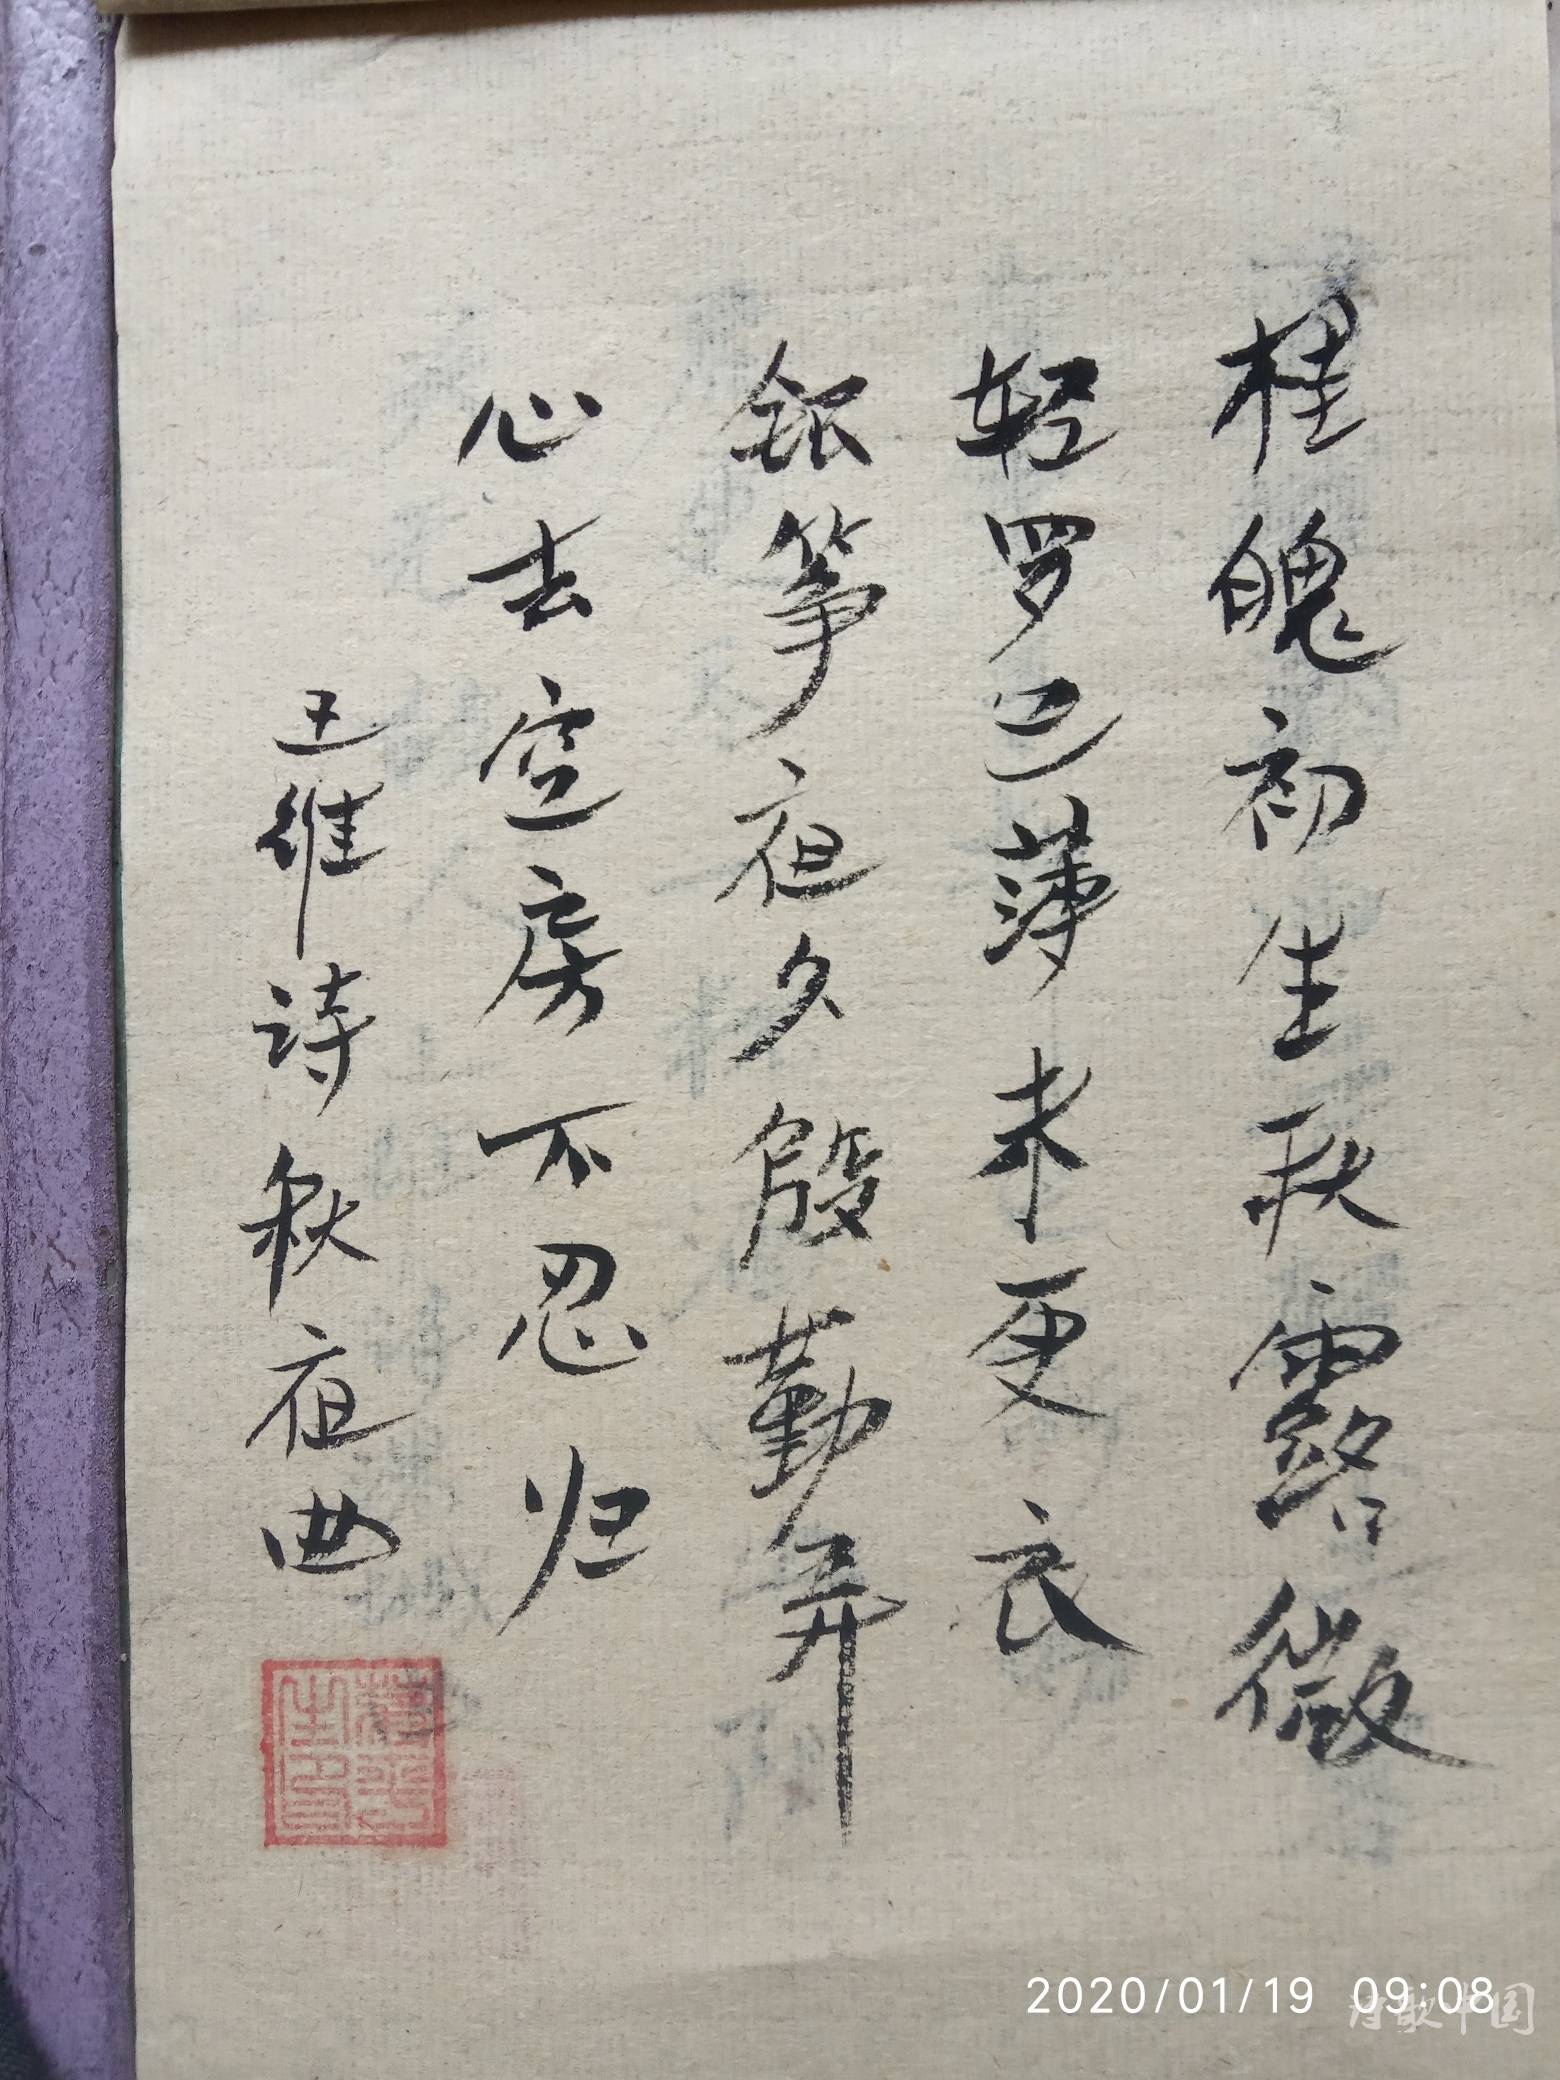 桂魄初生秋露微
轻罗已薄未更衣
银筝夜久殷勤弄
心去空房不忍归
王维诗秋夜曲
2020/01/19 09:08
诗歌中国